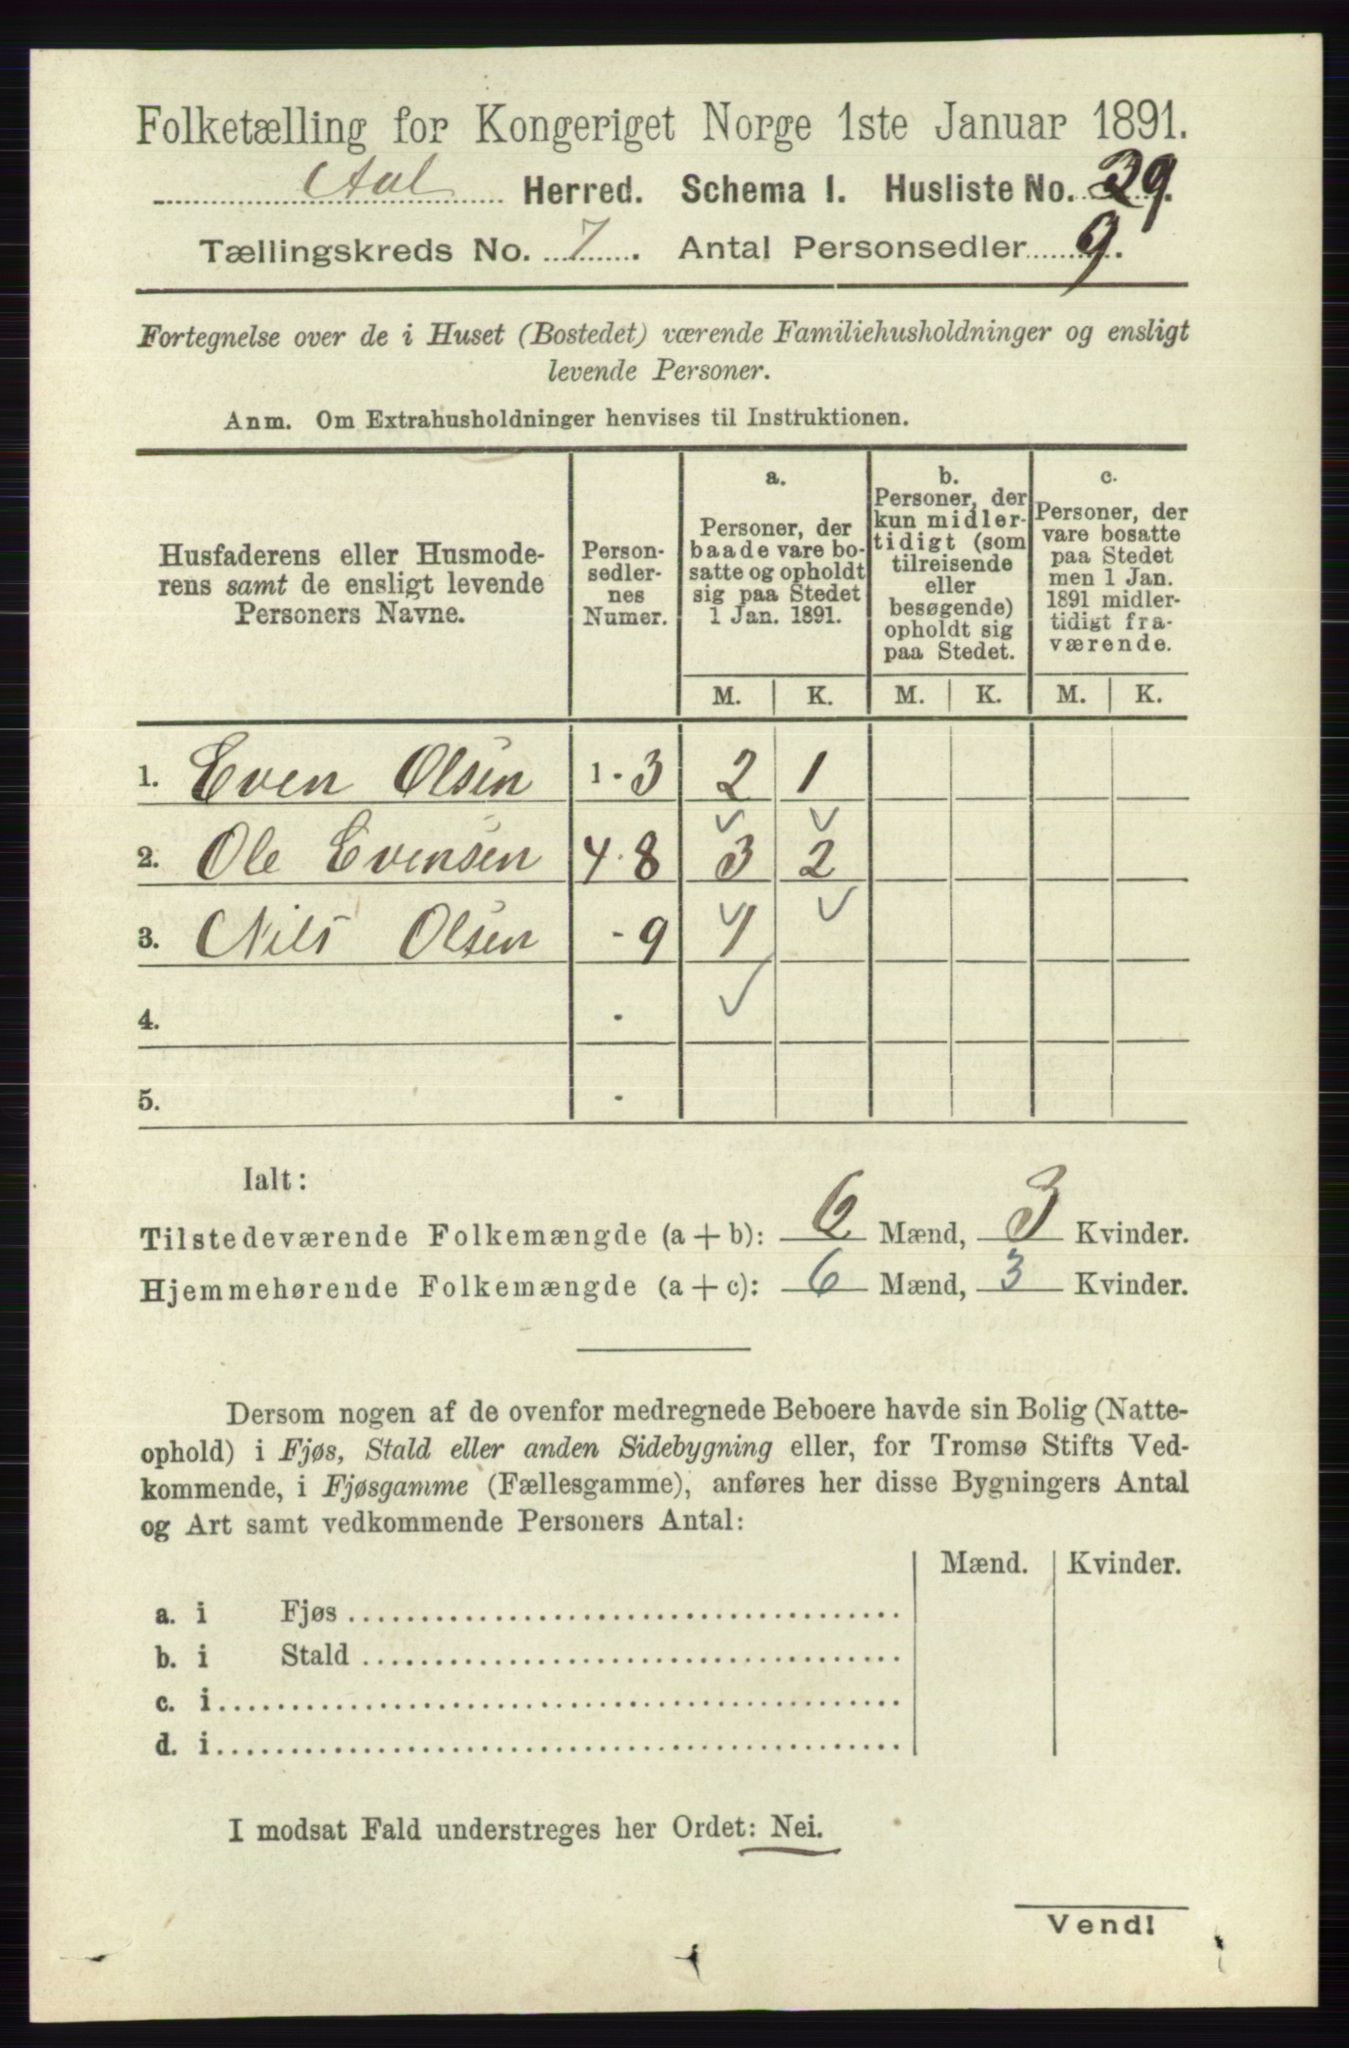 Folketælling for Kongeriget Norge 1ste Januar 1891.
Aal Herred. Schema I. Husliste No. 39.
Tællingskreds No. 7. Antal Personsedler 9.
Fortegnelse over de i Huset (Bostedet) værende Familiehusholdninger og ensligt
levende Personer.
Anm. Om Extrahusholdninger henvises til Instruktionen.
Husfaderens eller Husmode-
rens samt de ensligt levende
Personers Navne.
Person-
sedler-
nes
Numer.
a.
Personer, der
baade vare bo-
satte og opholdt
sig paa Stedet
1 Jan. 1891.
b.
Personer, der
kun midler-
tidigt (som
tilreisende
eller
besøgende)
opholdt sig
paa Stedet.
c.
Personer, der
vare bosatte
paa Stedet
men 1 Jan.
1891 midler-
tidigt fra-
værende.
M. K. M. K. M. K.
1. Even Olsen 1 - 3 2 1
2. Ole Evensen 4 - 8 3 2
3. Nils Olsen - 9 1
4. -
5. -
Ialt:
Tilstedeværende Folkemængde (a + b): 6 Mænd, 3 Kvinder.
Hjemmehørende Folkemængde (a + c): 6 Mænd, 3 Kvinder.
Dersom nogen af de ovenfor medregnede Beboere havde sin Bolig (Natte-
ophold) i Fjøs, Stald eller anden Sidebygning eller, for Tromsø Stifts Ved-
kommende, i Fjøsgamme (Fællesgamme), anføres her disse Bygningers Antal
og Art samt vedkommende Personers Antal:
Mænd. Kvinder.
a. i Fjøs
b. i Stald
c. i
d. i
I modsat Fald understreges her Ordet: Nei.
Vend!